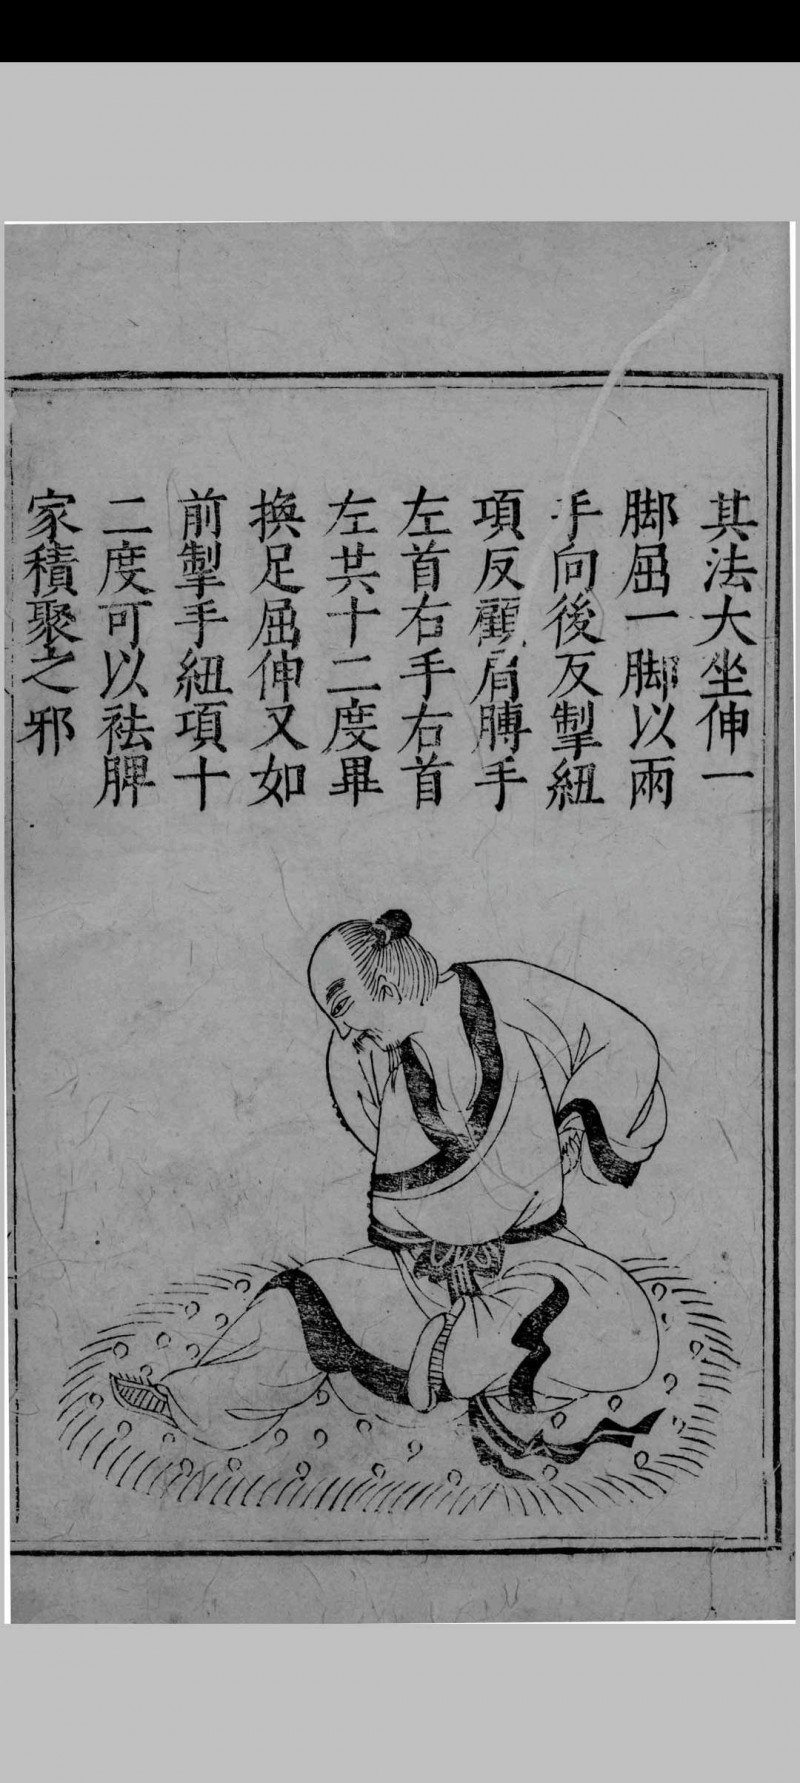 其法大坐伸一
脚屈一脚以兩
手向後反掣紐
項反顧肩膊手
左首右手右首
左共十二度畢
換足屈伸又如
前掣手紐項十
二度可以祛脾
家積聚之邪